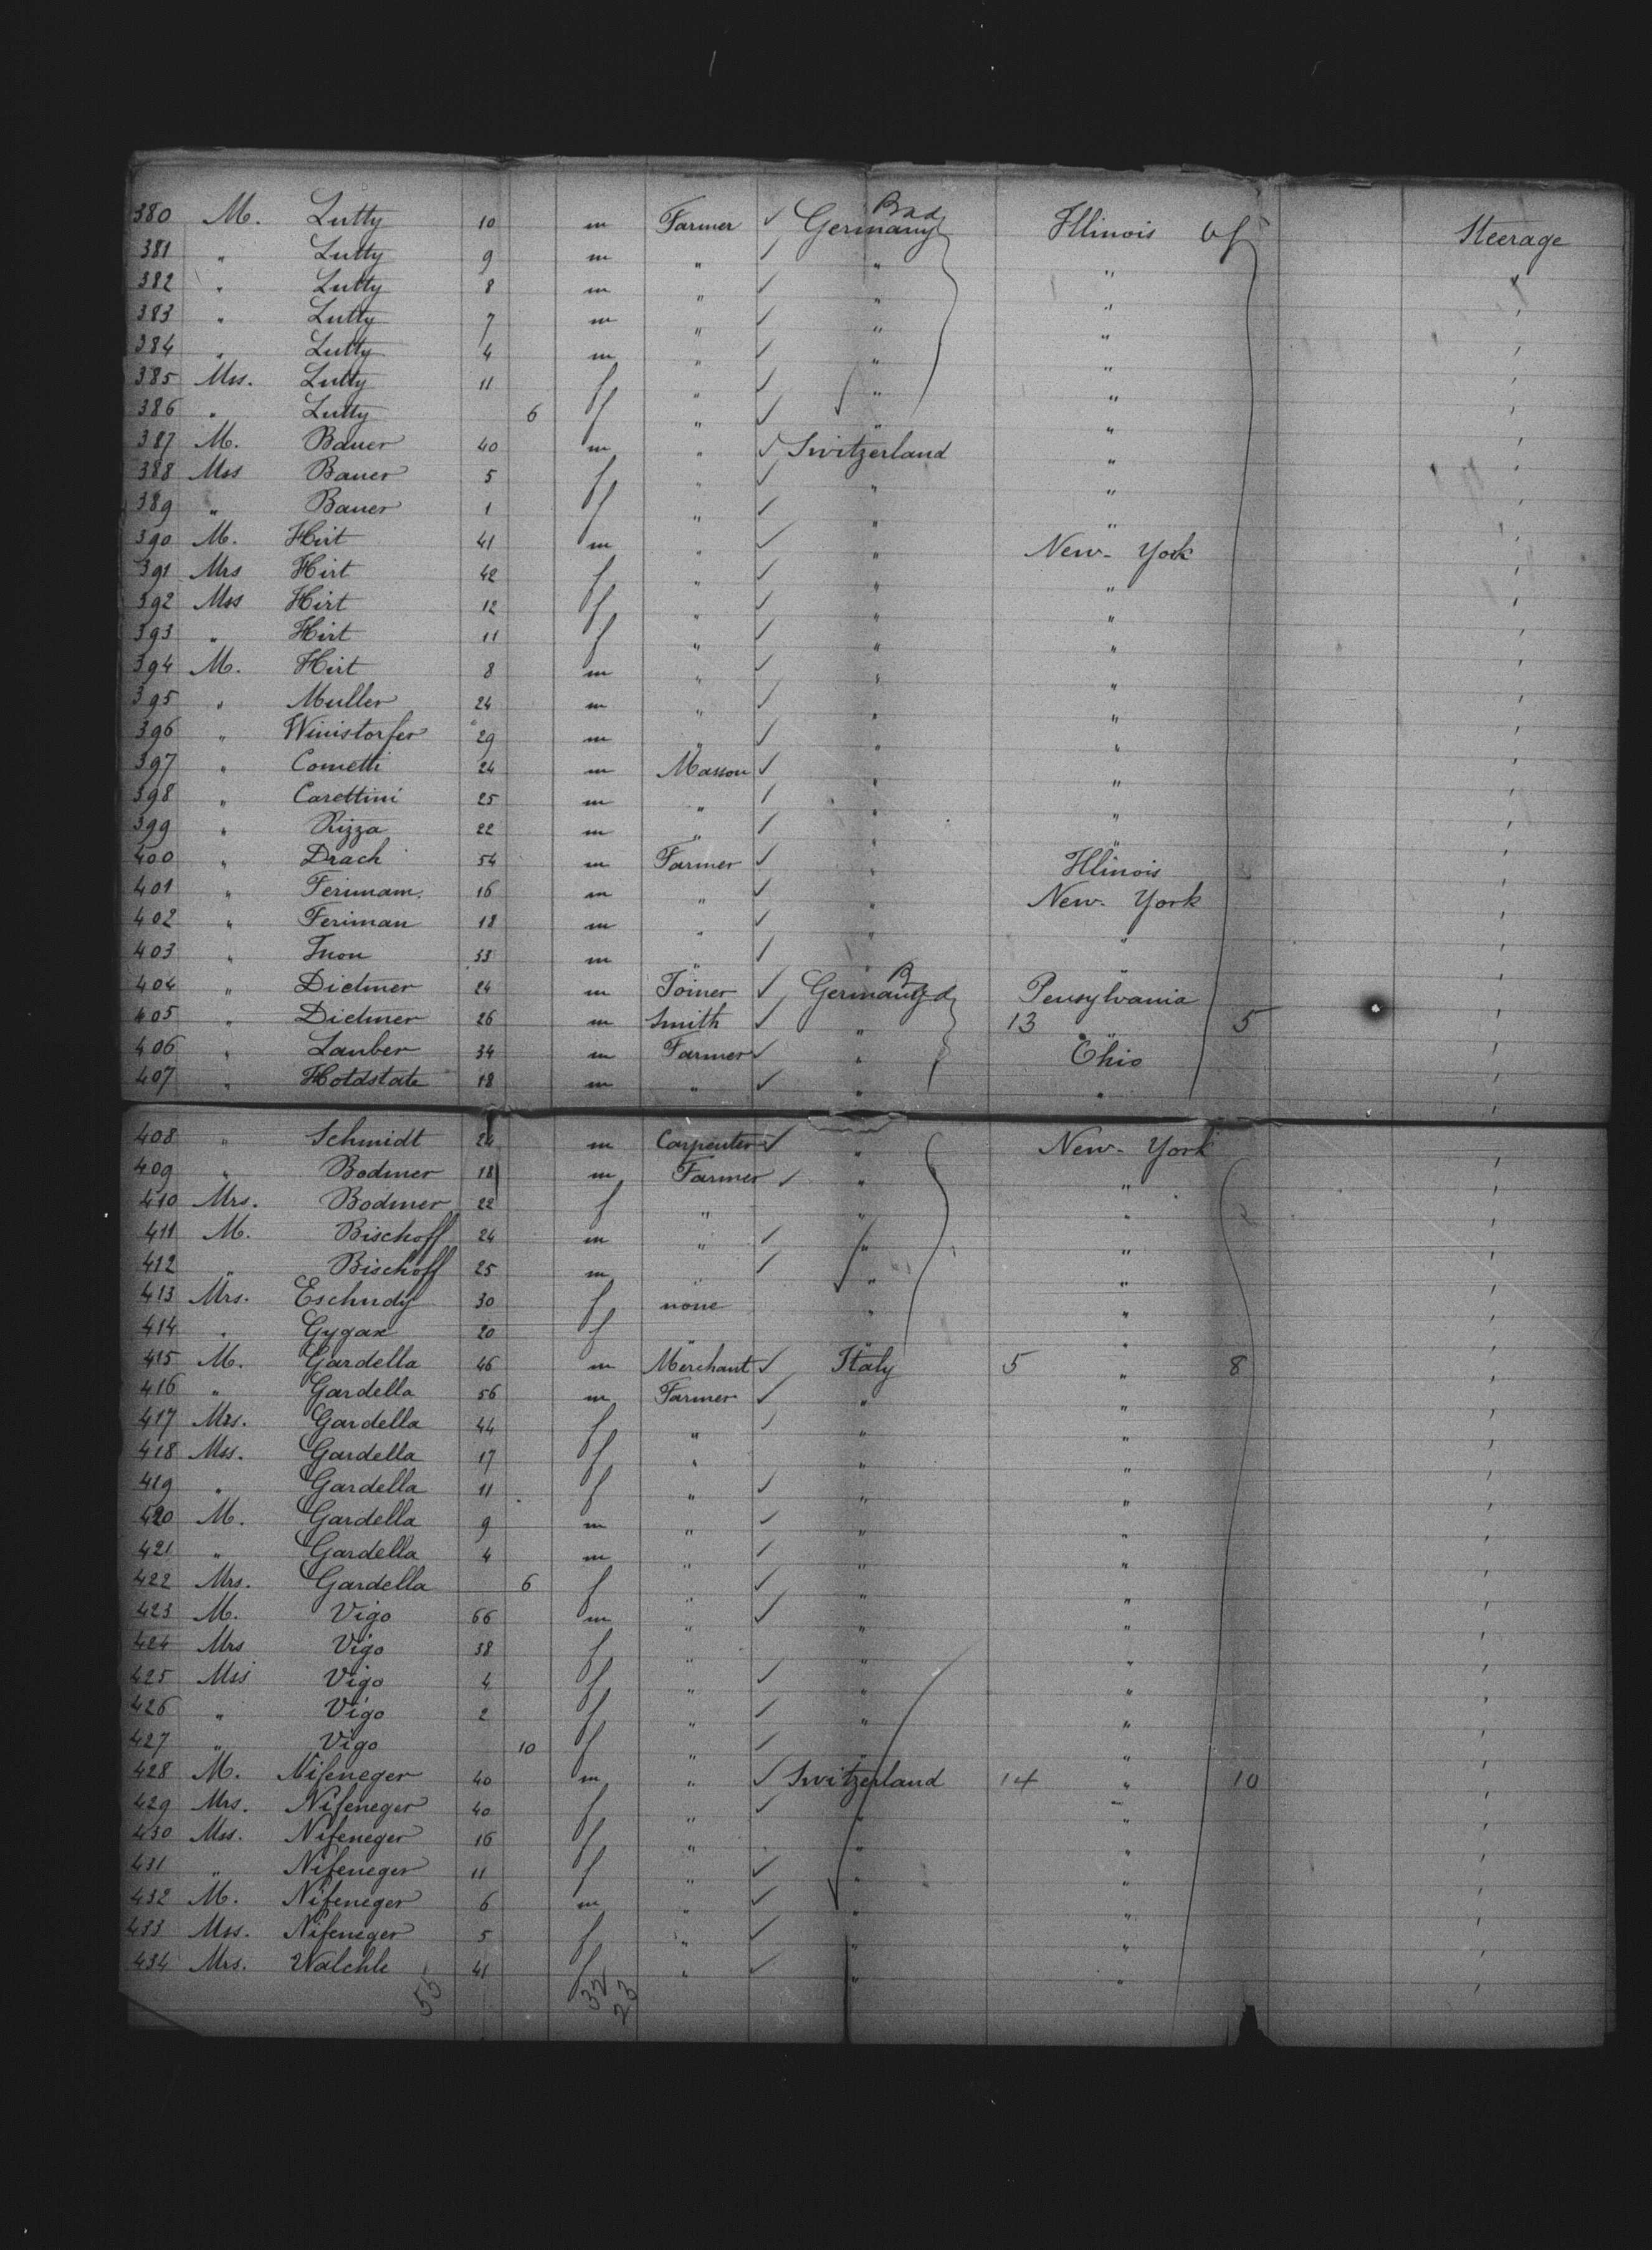 380 M. Lutty 10 m Farmer ✓ Germany Bad Illinois Steerage
381 " Lutty 9 m " ✓ " "
382 " Lutty 8 m " ✓ " "
383 " Lutty 7 m " ✓ " "
384 " Lutty 4 m " ✓ " "
385 Mss. Lutty 11 f " ✓ " "
386 " Lutty 6 f " ✓ " "
387 M. Bauer 40 m " ✓ Switzerland "
388 Mss Bauer 5 f " ✓ " "
389 " Bauer 1 f " ✓ " "
390 M. Hirt 41 m " ✓ " New-York
391 Mrs Hirt 42 f " ✓ " "
392 Mss Hirt 12 f " ✓ " "
393 " Hirt 11 f " ✓ " "
394 M. Hirt 8 m " ✓ " "
395 " Muller 24 m " ✓ " "
396 " Winistorfer 29 m " ✓ " "
397 " Cometti 24 m Masson ✓ " "
398 " Carettini 25 m " ✓ " "
399 " Rizza 22 m " ✓ " "
400 " Drach 54 m Farmer ✓ " Illinois
401 " Ferimam. 16 m " ✓ " New-York
402 " Feriman 18 m " ✓ " "
403 " 33 m " ✓ " "
404 " Dietmer 24 m Joiner ✓ Germany Bad Pensylvania
405 " Dietmer 26 m Smith ✓ " 13 " 5
406 " Lauber 34 m Farmer ✓ " Ohio
407 " Hotdstate 18 m " ✓ " "
408 " Schmidt 24 m Carpenter ✓ " New-York
409 " Bodmer 18 m Farmer ✓ " "
410 Mrs. Bodmer 22 f " " "
411 M. Bischoff 24 m " ✓ " "
412 " Bischoff 25 m " ✓ " "
413 Mrs. Eschudy 30 f none " "
414 " Gygax 20 f " " "
415 M. Gardella 46 m Merchant ✓ Italy 5 " 8
416 " Gardella 56 m Farmer ✓ " "
417 Mrs. Gardella 44 f " ✓ " "
418 Mss. Gardella 17 f " " "
419 " Gardella 11 f " ✓ " "
420 M. Gardella 9 m " ✓ " "
421 " Gardella 4 m " ✓ " "
422 Mrs. Gardella 6 f " ✓ " "
423 M. Vigo 66 m " ✓ " "
424 Mrs Vigo 38 f " " "
425 Mss Vigo 4 f " ✓ " "
426 " Vigo 2 f " ✓ " "
427 " Vigo 10 f " ✓ " "
428 M. Nifeneger 40 m " ✓ Switzerland 14 " 10
429 Mrs. Nifeneger 40 f " ✓ " "
430 Mss. Nifeneger 16 f " " "
431 " Nifeneger 11 f " ✓ " "
432 M. Nifeneger 6 m " ✓ " "
433 Mss. Nifeneger 5 f " ✓ " "
434 Mrs. Walchle 41 f " ✓ " "
55 32
23